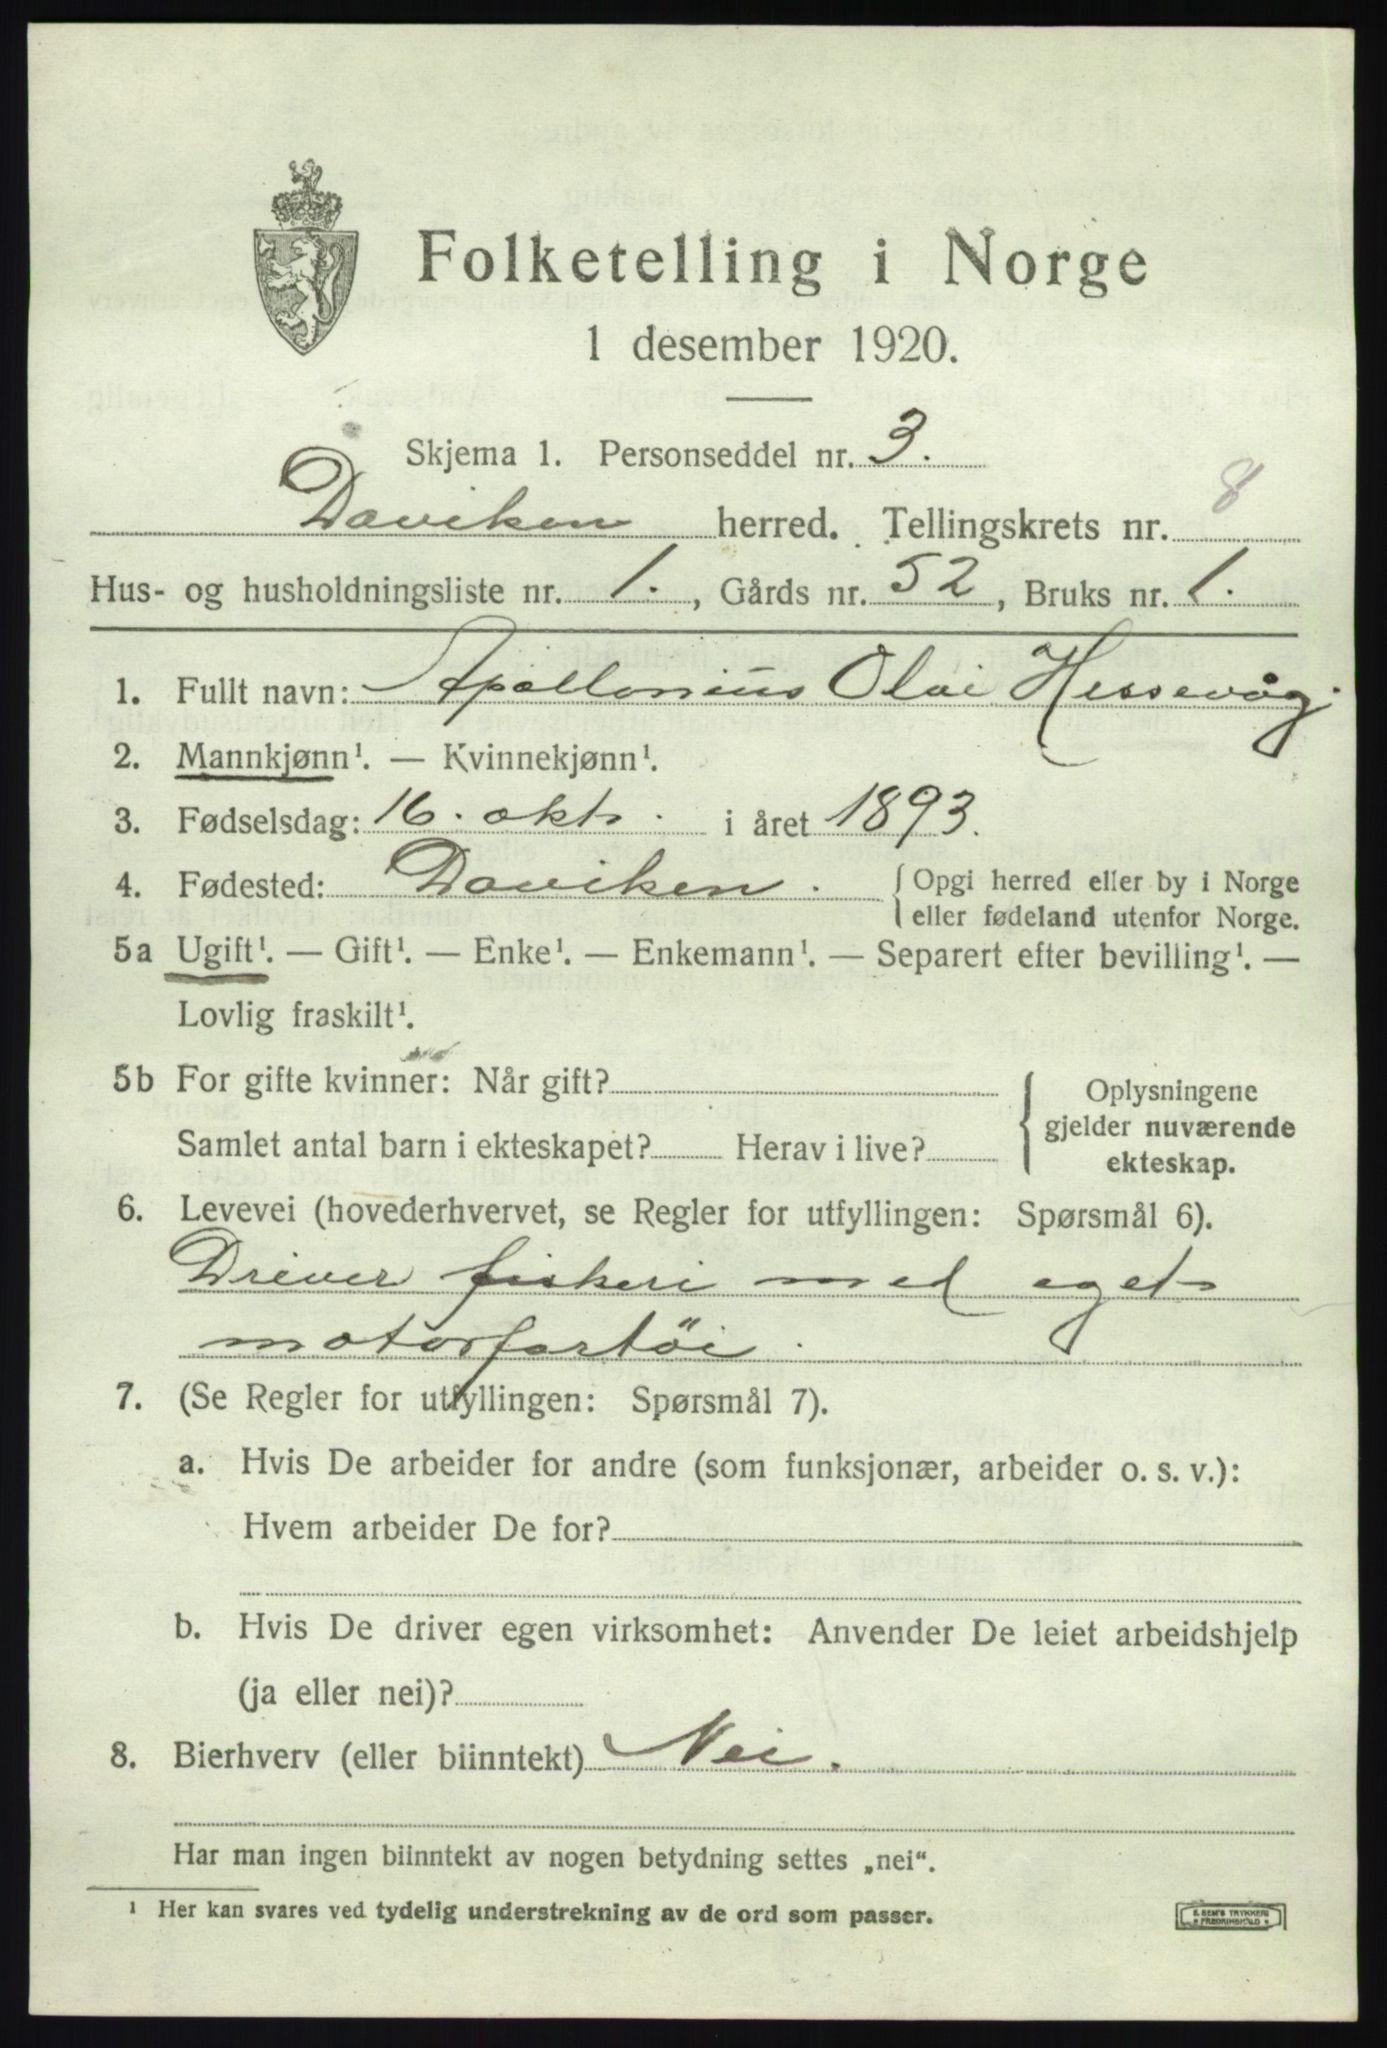 Folketelling i Norge
1 desember 1920.
Skjema 1. Personseddel nr. 3.
Daviken herred. Tellingskrets nr. 8
Hus- og husholdningsliste nr. 1., Gårds nr. 52, Bruks nr. 1.
1. Fullt navn: Apollonius Olai Hessevåg.
2. Mannkjønn¹. — Kvinnekjønn¹.
3. Fødselsdag: 16. okt. i året 1893.
4. Fødested: Daviken. { Opgi herred eller by i Norge
eller fødeland utenfor Norge.
5a Ugift¹. — Gift¹. — Enke¹. — Enkemann¹. — Separert efter bevilling¹. —
Lovlig fraskilt¹.
5b For gifte kvinner: Når gift?
Samlet antal barn i ekteskapet? Herav i live?
{ Oplysningene
gjelder nuværende
ekteskap.
6. Levevei (hovederhvervet, se Regler for utfyllingen: Spørsmål 6).
Driver fiskeri med eget
motorfartöi.
7. (Se Regler for utfyllingen: Spørsmål 7).
a. Hvis De arbeider for andre (som funksjonær, arbeider o. s. v.):
Hvem arbeider De for?
b. Hvis De driver egen virksomhet: Anvender De leiet arbeidshjelp
(ja eller nei)?
8. Bierhverv (eller biinntekt) Nei.
Har man ingen biinntekt av nogen betydning settes „nei“.
¹ Her kan svares ved tydelig understrekning av de ord som passer.
E. SEM'S TRYKKERI
FREDRIKSHALD